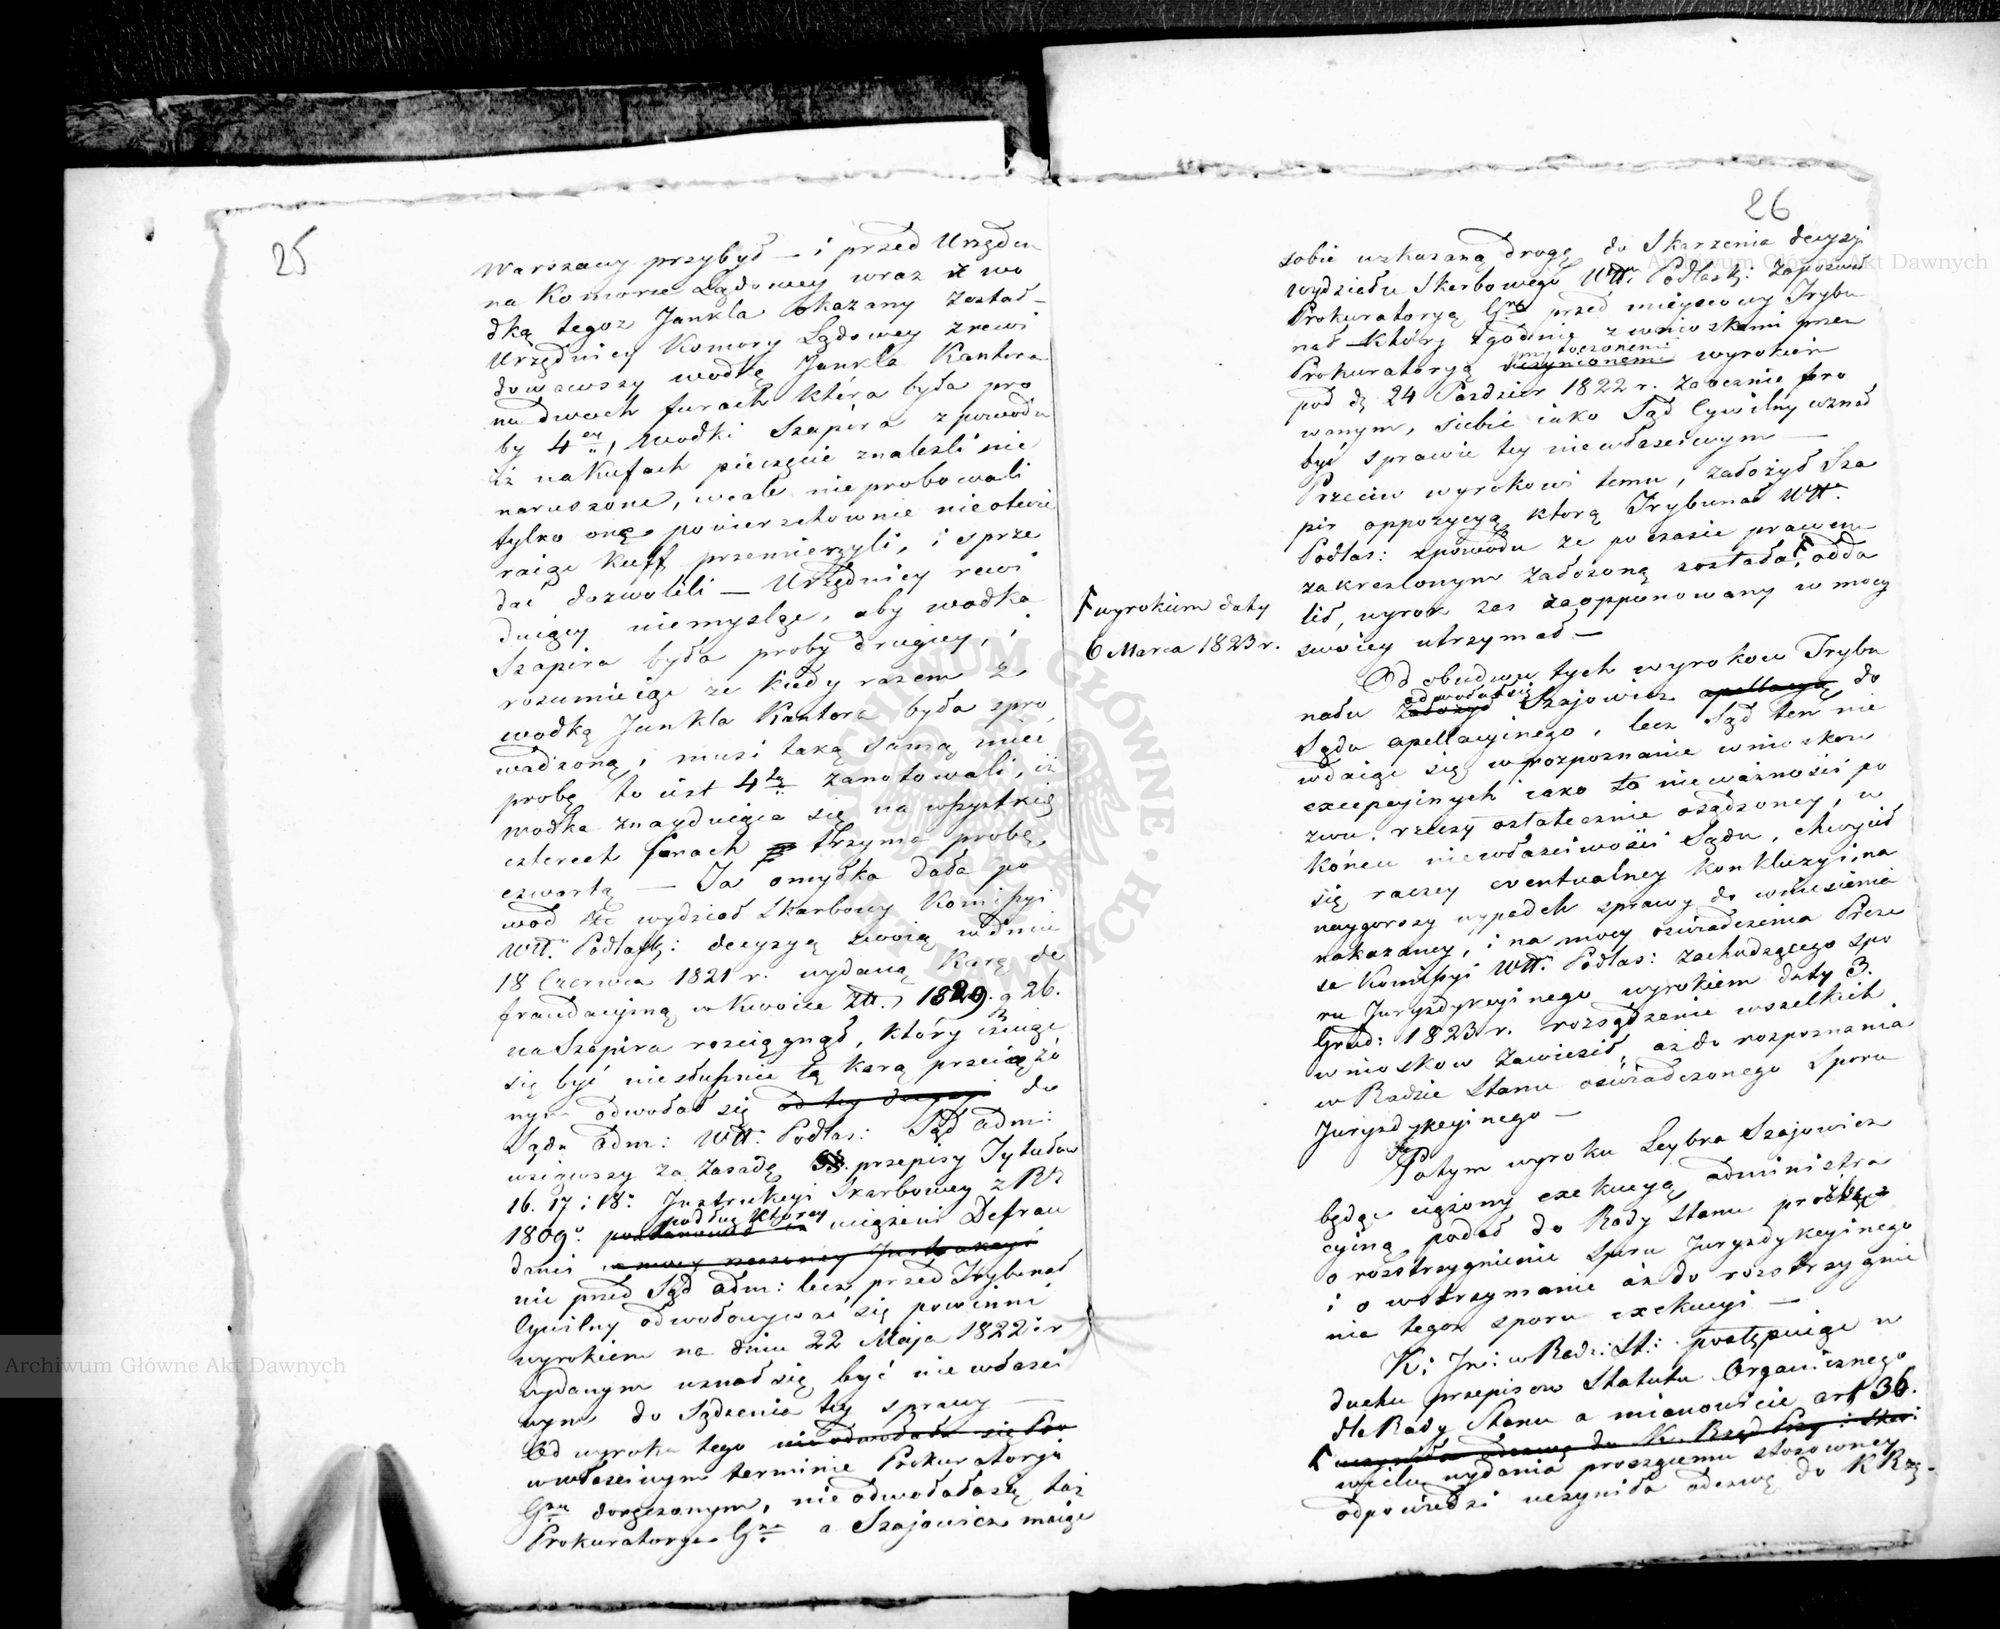 25
Warszawy przybył — i przed Urzędem
na Komorze Lądowey wraz z wo
dką tegoż Jankla okazany został —
Urzędnicy Komory Lądowey zrewi
dowawszy wodkę Jankla Kantora
na dwoch furach która była pro
by 4ey, wodki Szapira z powodu
iż na Kufach pieczęcie znalezli nie
naruszone, wcale nie probowali
tylko onę powierzchownie nie otwie
raiąc kuff przemierzyli, i sprze
dać dozwolili — Urzędnicy rewi
duiący niemysląc, aby wodka
Szapira była proby drugiey, i
rozumieiąc ze kiedy razem z
wodką Jankla Kantora była spro
wadzoną, musi taką samą mieć
probę to iest 4tą zanotowali, iż
wodka znayduiąca się na wszystkich
czterech furach trzyma probę
czwartą — Ta omyłka dała po
wod że wydział Skarbowy Kommissyi
Wtt. Podlask: decyzyą swoią w dniu
18 Czerwca 1821 r. wydaną karę de
fraudacyiną w kwocie Ztt. 1829. g 26.
na Szapira rozciągnął, który czuiąc
się być niesłusznie tą karą przeciążo
nym odwołał się od tey decyzyi do
Sądu adm: Wtt. Podlas: Sąd adm:
wziąwszy za zasadę przepisy Tytułow
16. 17 i 18. Instrukcyi Skarbowey z R.
1809o podług którey uciążeni Defrau
danci
nie przed Sąd adm: lecz przed Trybunał
Cywilny odwoływać się powinni
wyrokiem na dniu 22 Maja 1822 r
wydanym uznał się być nie właści
wym do Sądzenia tey sprawy —
Od wyroku tego nie odwołała się Pro
w właściwym terminie Prokuratoryi
Gney doręczonym, nie odwołała się taż
Prokuratorya Gna a Szajowicz maiąc
26
sobie wskazaną drogę do Skarzenia decyzyi
wydziału Skarbowego Wtt. Podlask: zapozwał
Prokuratoryą Gną przed mieyscowy Trybu
nał który zgodnie z wnioskami przez
Prokuratoryą uczynionemi wyrokiem
pod d. 24 Pazdzier 1822 r. zaocznie fero
wanym, siebie iako Sąd Cywilny uznał
być sprawie tey niewłaściwym —
Przeciw wyrokowi temu, założył Sza
pir oppozycyą którą Trybunał Wtt.
Podlas: z powodu ze po czasie prawem
zakreslonym założoną została, odda
lił, wyrok zas zaopponowany w mocy
swoiey utrzymał —
wyrokiem daty
6 Marca 1823 r.
Od obudwu tych wyrokow Trybu
nału odwołał się Szajowicz apellacyą do
Sądu apellacyinego, lecz Sąd ten nie
wdaiąc się w rozpoznanie wnioskow
excepcyinych iako to nieważności po
zwu, rzeczy ostatecznie osądzoney, w
końcu niewłaściwości Sądu, chwycił
się raczey eventualney konkluzyi, na
naygorszy wypadek sprawy do wniesienia
nakazaney, i na mocy oświadczenia Preze
sa Kommissyi Wtt. Podlas: zachodzącego spo
ru Juryzdykcyinego wyrokiem daty 3.
Grud: 1823 r. rozsądzenie wszelkich
wnioskow zawiesił, aż do rozpoznania
w Radzie Stanu oświadczonego Sporu
Juryzdykcyinego —
Po tym wyroku Leybra Szajowicz
będąc ciążony exekucyą administra
cyiną podał do Rady Stanu prośbę
o rozstrzygnienie sporu Juryzdykcyinego
i o wstrzymanie aż do rozstrzygnie
nia tegoż sporu exekucyi —
K: In: w Rad: St: postępuiąc w
duchu przepisow Statutu Organicznego
dla Rady Stanu a mianowicie art 36.
uczyniła odezwę do K. Rząd Przy: i Skar:
w celu wydania proszącemu stosowney
odpowiedzi uczyniła odezwę do K Rz.
Archiwum Główne Akt Dawnych
Archiwum Główne Akt Dawnych
ARCHIWUM GŁÓWNE AKT DAWNYCH